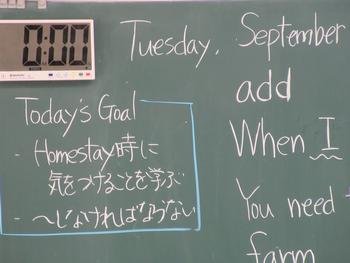 0:00
Tuesday, September
add
Today's Goal
When I
- Homestay時に
気をつけることを学ぶ
You need
- ~しなければならない
farm